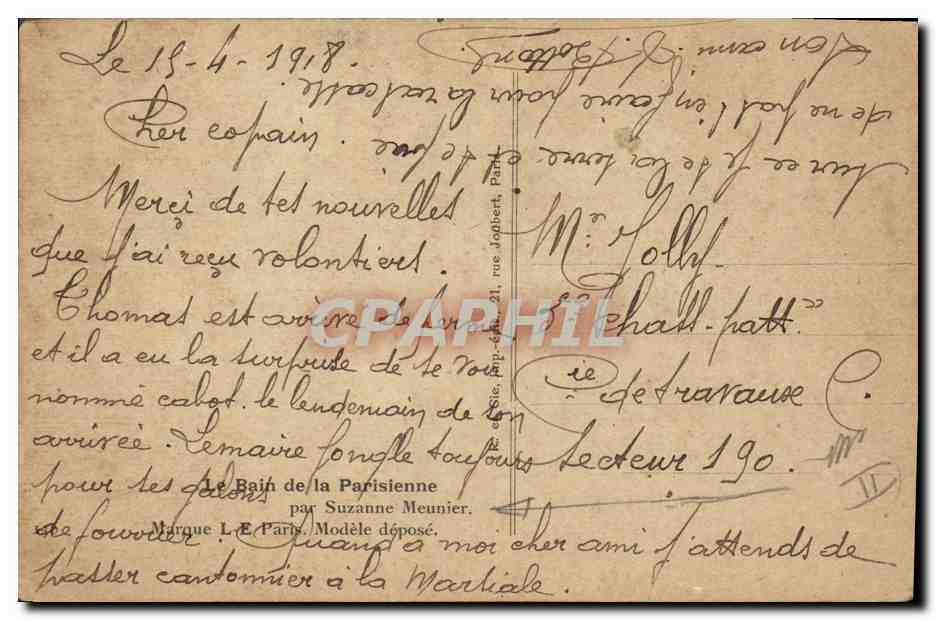 Le 15-4-1918.
Cher copain.
Merçi de tes nouvelles
que j'ai reçu volontiers.
Thomas est arrivé de
et il a eu la surprise de se voir
nommé cabot. le lendemain de son
arrivée. Lemaire jongle toujours
pour ses galons
de fourrier. Quand a moi cher ami j'attends de
passer cantonnier à la Martiale.
de ne pas l'en faire pour la
Ton ami.
Mr Jolly
3e Chass-patt.
Cie de travause
Secteur 190.
II
Le Bain de la Parisienne
par Suzanne Meunier.
Marque L-E Paris. Modèle déposé.
et Cie, Imp.-édit., 21, rue Joubert, Paris.
CPAPHIL